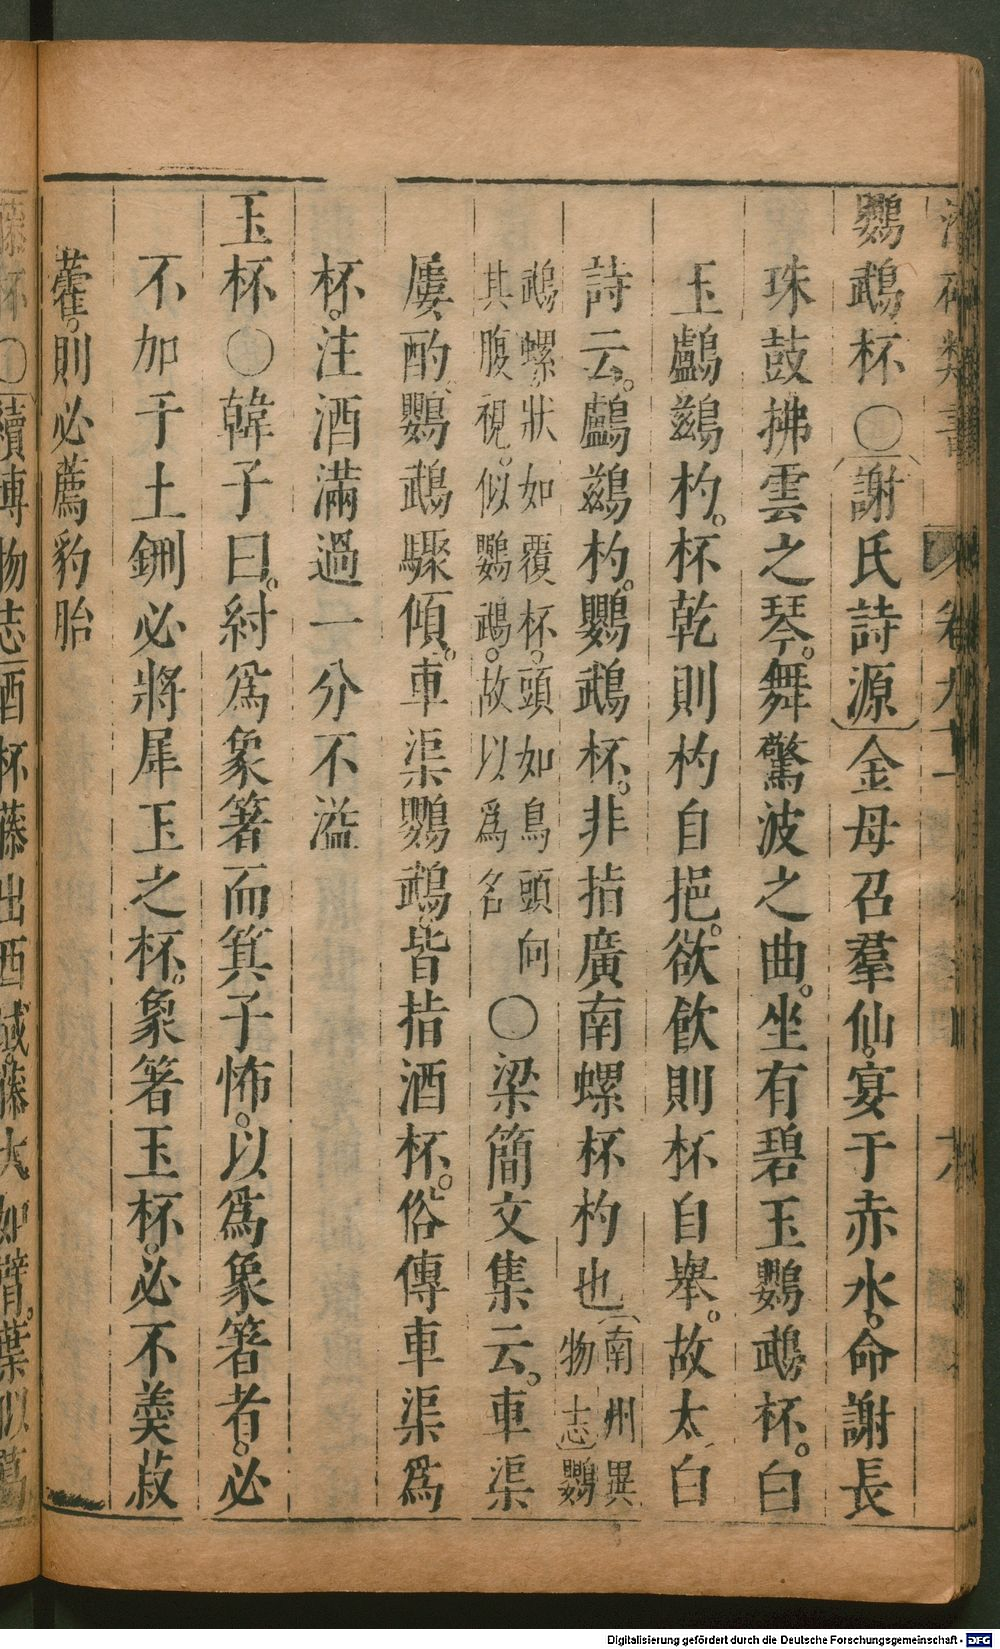 鸚鵡杯○謝氏詩源金母召羣仙宴于赤水命謝長
珠鼓拂雲之琴舞驚波之曲坐有碧玉鸚鵡杯白
玉鸕鷀杓杯乾則杓自挹欲飲則杯自舉故太白
詩云鸕鷀杓鸚鵡杯非指廣南螺杯杓也南州異
物志鸚
鵡螺狀如覆杯頭如鳥頭向
其腹視似鸚鵡故以爲名
○梁簡文集云車渠
屢酌鸚鵡驟傾車渠鸚鵡皆指酒杯俗傳車渠爲
杯注酒滿過一分不溢
玉杯○韓子曰紂爲象箸而箕子怖以爲象箸者必
不加于土鉶必將犀玉之杯象箸玉杯必不羹菽
藿則必薦豹胎
藤杯○續博物志酒杯藤出西域藤大如臂葉似葛
卷九十
Digitalisierung gefördert durch die Deutsche Forschungsgemeinschaft - DFG